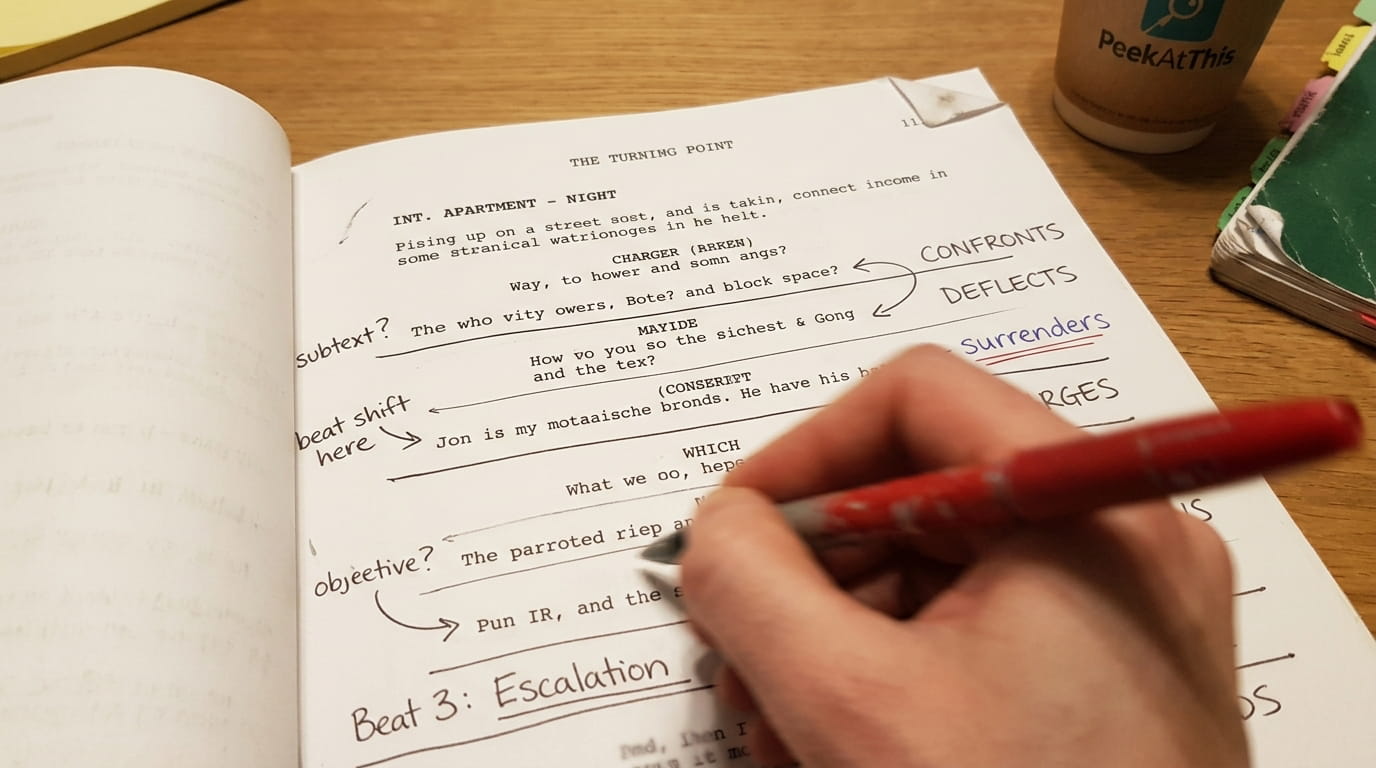 PeekAtThis
THE TURNING POINT
INT. APARTMENT – NIGHT
Pising up on a street sost, and is takin, connect income in
some stranical watrionoges in he helt.
CHARGER (ARKEN)
Way, to hower and somn angs?
CONFRONTS
subtext?
The who vity owers, Bote? and block space?
DEFLECTS
MAYIDE
How vo you so the sichest & Gong
and the tex?
surrenders
beat shift
here
Jon is my motaaische bronds. He have his
WHICH
What we oo,
objeetive?
The parroted riep
Pun IR, and the
Beat 3: Escalation